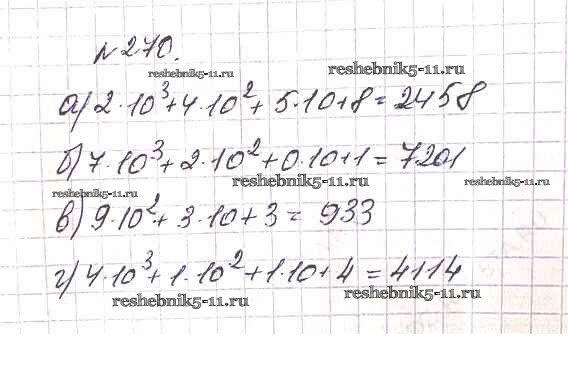 №270.
reshebnik5-11.ru reshebnik5-11.ru
а) 2·10³+4·10²+5·10+8=2458
б) 7·10³+2·10²+0·10+1=7201
reshebnik5-11.ru reshebnik5-11.ru reshebnik5-11.ru
в) 9·10²+3·10+3=933
г) 4·10³+1·10²+1·10+4=4114
reshebnik5-11.ru reshebnik5-11.ru